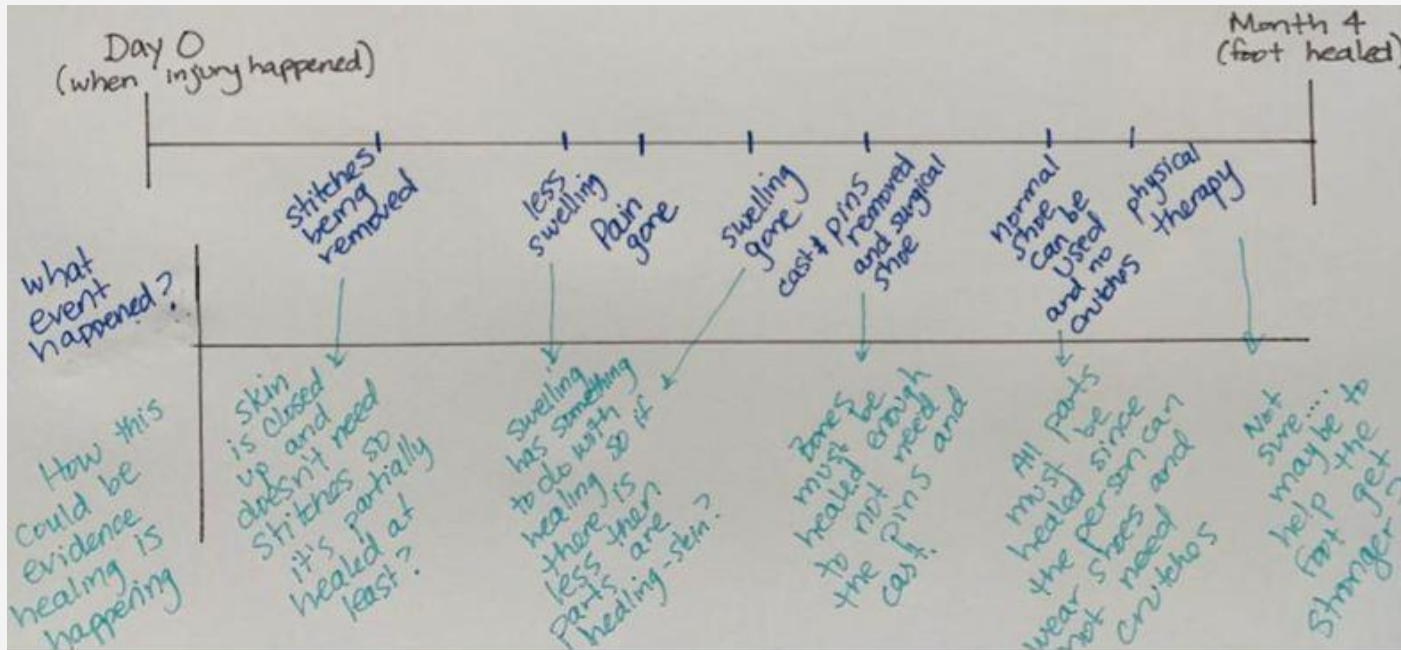 Day 0
(when injury happened)
Month 4
(foot healed)
what
event
happened?
stitches
being
removed
less
swelling
Pain
gone
swelling
gone
cast & pins
removed
and surgical
shoe
normal
shoe
can be
used
and no
crutches
physical
therapy
How this
could be
evidence
healing is
happening
skin
is closed
up and
doesn't need
stitches so
it's partially
healed at
least?
swelling
has something
to do with
healing so if
there is
less then
parts are
healing-skin?
Bones
must be
healed enough
to not need
the pins and
cast.
All parts
must be
healed since
the person can
wear shoes and
not need
crutches
Not
sure....
maybe to
help the
foot get
stronger?